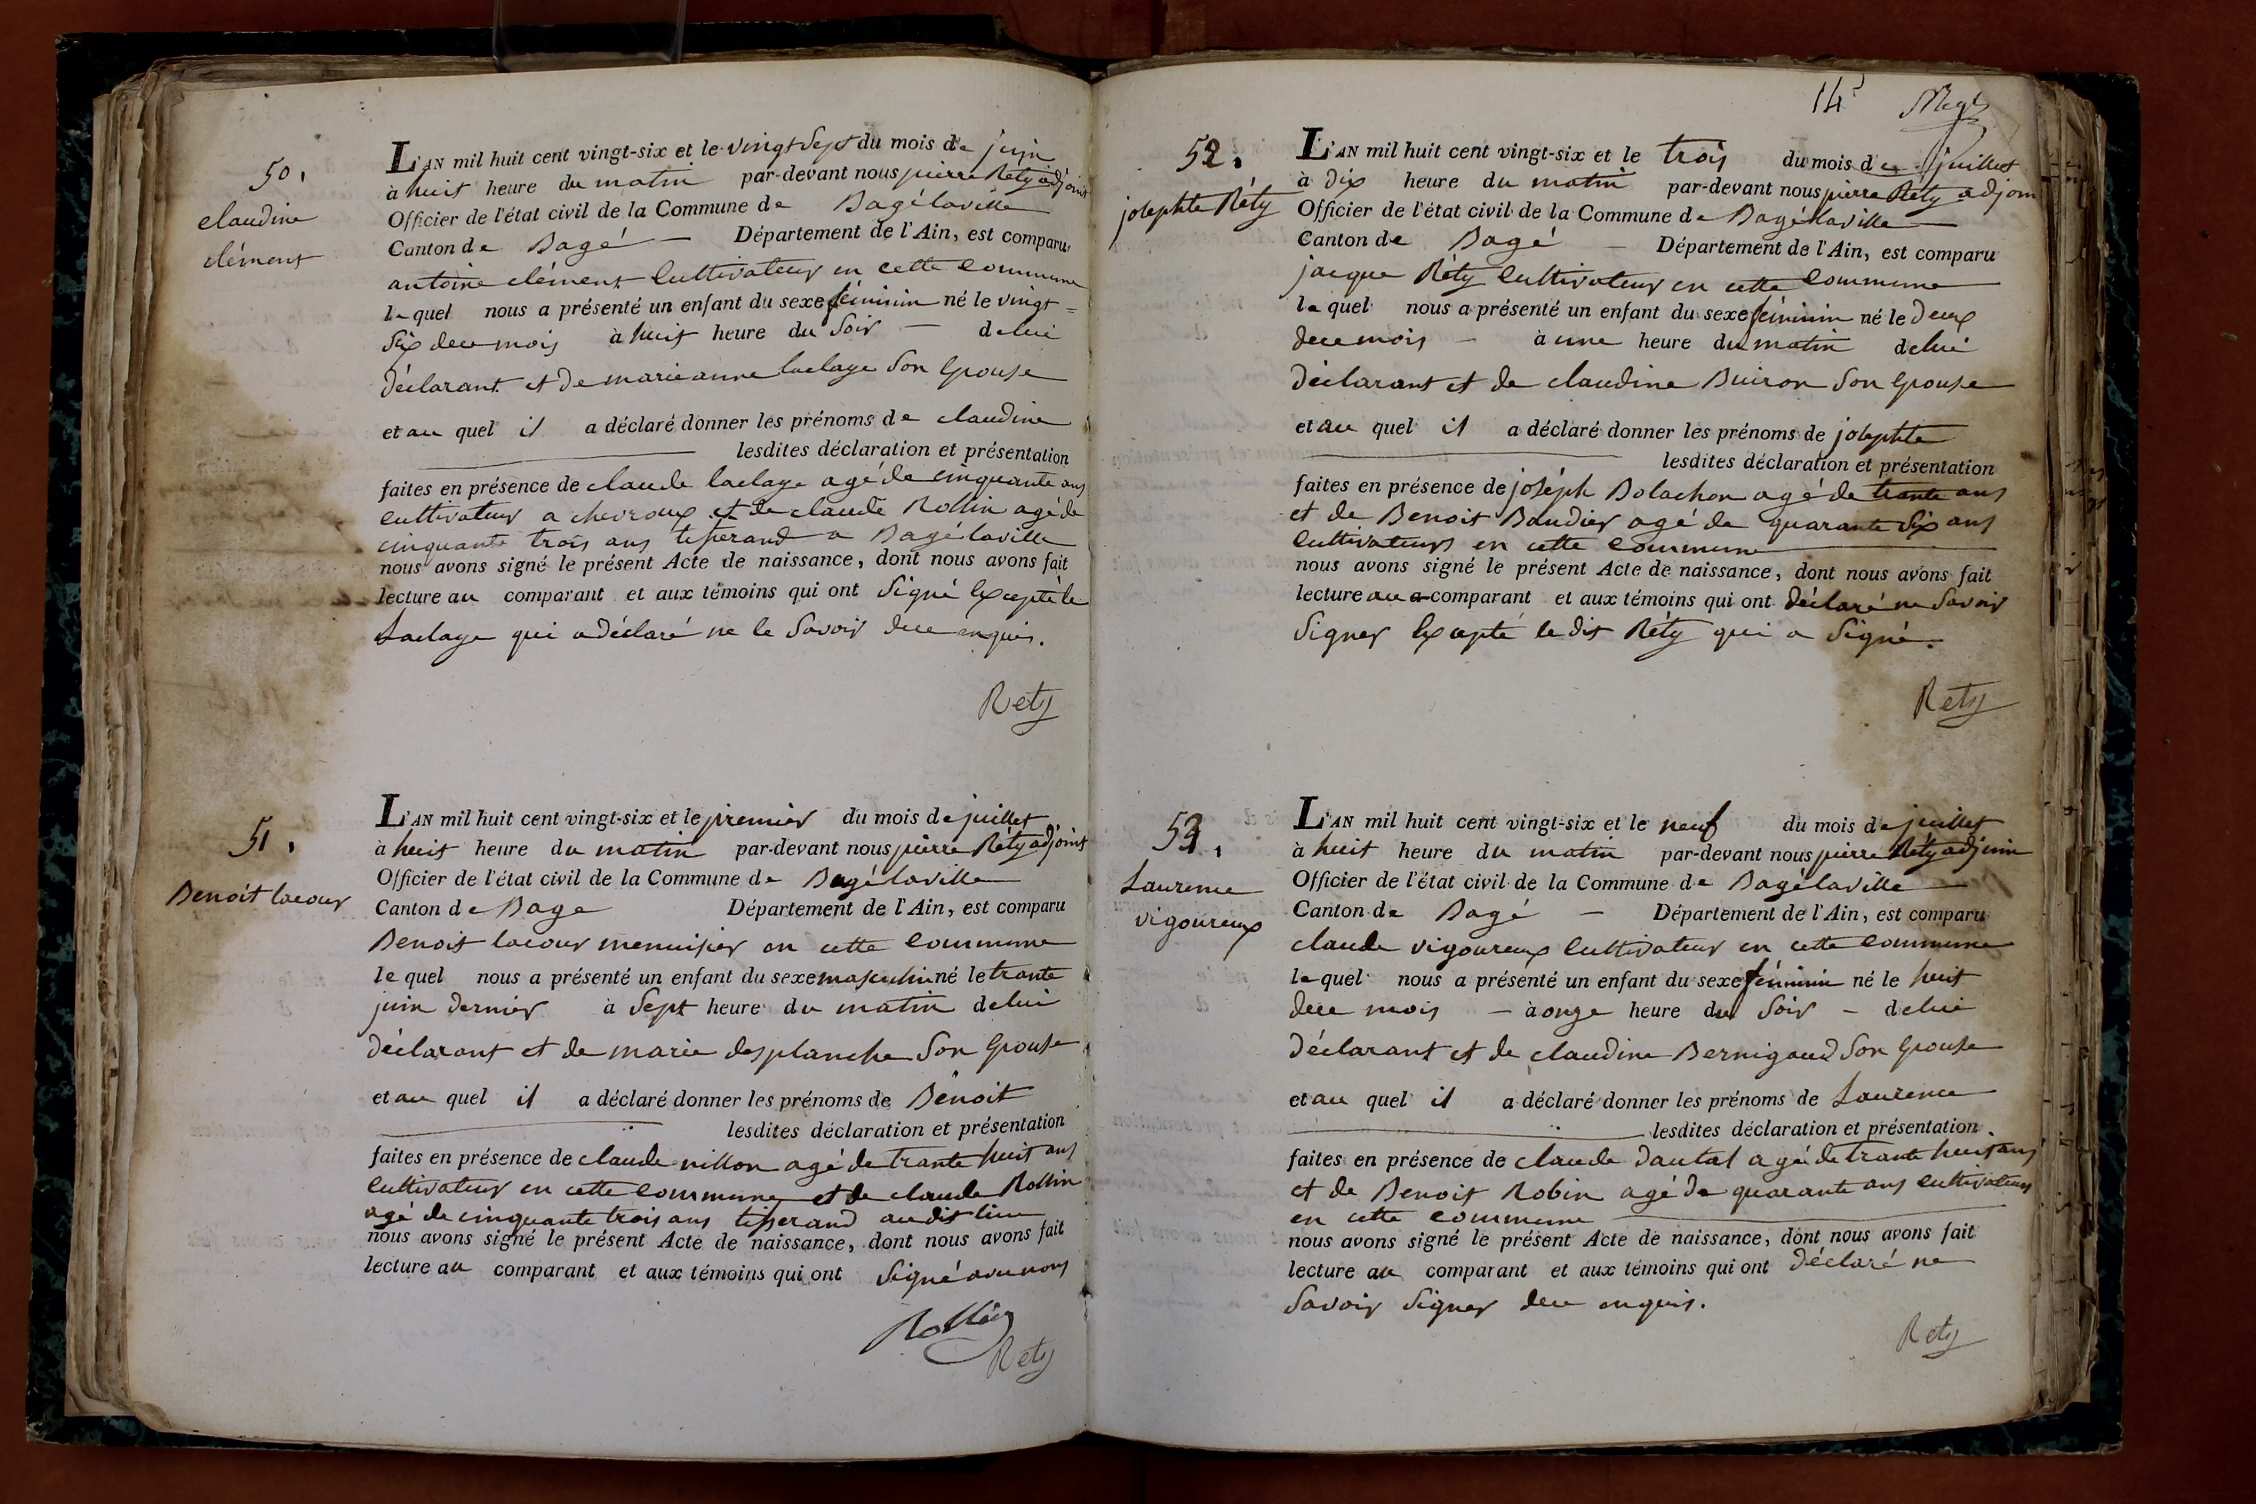 50.
claudine
clément
L'AN mil huit cent vingt-six et le vingt Sept du mois de juin
à huit heure du matin par-devant nous pierre Réty adjoint
Officier de l'état civil de la Commune de Bagélaville
Canton de Bagé — Département de l'Ain, est comparu
antoine clément Cultivateur en cette Commune
le quel nous a présenté un enfant du sexe féminin né le vingt =
Six dece mois à huit heure du Soir — de lui
déclarant et de marieanne laclaye Son Epouse
et au quel il a déclaré donner les prénoms de claudine
lesdites déclaration et présentation
faites en présence de claude laclaye agé de cinquante ans
cultivateur a chevroux et de claude Rollin agé de
cinquante trois ans tisserand a Bagélaville
nous avons signé le présent Acte de naissance, dont nous avons fait
lecture au comparant et aux témoins qui ont Signé Excepté le
Laclaye qui a déclaré ne le Savoir dece enquis.
Rety
51.
Benoit lacour
L'AN mil huit cent vingt-six et le premier du mois de juillet
à huit heure du matin par-devant nous pierre Réty adjoint
Officier de l'état civil de la Commune de Bagélaville
Canton de Bage Département de l'Ain, est comparu
Benoit lacour menuisier en cette Commune
le quel nous a présenté un enfant du sexe masculin né le trante
juin dernier à Sept heure du matin de lui
déclarant et de marie desplanche Son Epouse
et au quel il a déclaré donner les prénoms de Benoit
lesdites déclaration et présentation
faites en présence de claude nillon agé de trante huit ans
Cultivateur en cette Commune et de claude Rollin
agé de cinquante trois ans tisserand au dit lieu
nous avons signé le présent Acte de naissance, dont nous avons fait
lecture au comparant et aux témoins qui ont Signé avec nous
Rollin
Rety
14
52.
josephte Réty
L'AN mil huit cent vingt-six et le trois du mois de juillet
à dix heure du matin par-devant nous pierre Réty adjoin
Officier de l'état civil de la Commune de Bagélaville
Canton de Bagé — Département de l'Ain, est comparu
jacque Réty Cultivateur en cette Commune
le quel nous a présenté un enfant du sexe féminin né le deux
dece mois — à une heure du matin de lui
déclarant et de claudine Buiron Son Epouse
et au quel il a déclaré donner les prénoms de josephte
lesdites déclaration et présentation
faites en présence de joséph Bolachon agé de trante ans
et de Benoit Baudier agé de quarante Six ans
Cultivateurs en cette Commune
nous avons signé le présent Acte de naissance, dont nous avons fait
lecture au comparant et aux témoins qui ont déclaré ne Savoir
Signer Excepté le dit Réty qui a Signé.
Rety
53.
Laurence
vigoureux
L'AN mil huit cent vingt-six et le neuf du mois de juillet
à huit heure du matin par-devant nous pierre Réty adjoin
Officier de l'état civil de la Commune de Bagélaville
Canton de Bagé — Département de l'Ain, est comparu
claude vigoureux Cultivateur en cette Commune
le quel nous a présenté un enfant du sexe féminin né le huit
dece mois — à onze heure du Soir — de lui
déclarant et de claudine Bernigaud Son Epouse
et au quel il a déclaré donner les prénoms de Laurence
lesdites déclaration et présentation
faites en présence de claude dautal agé de trante huit ans
et de Benoit Robin agé de quarante ans cultivateurs
en cette Commune
nous avons signé le présent Acte de naissance, dont nous avons fait
lecture au comparant et aux témoins qui ont déclaré ne
Savoir Signer dece enquis.
Rety